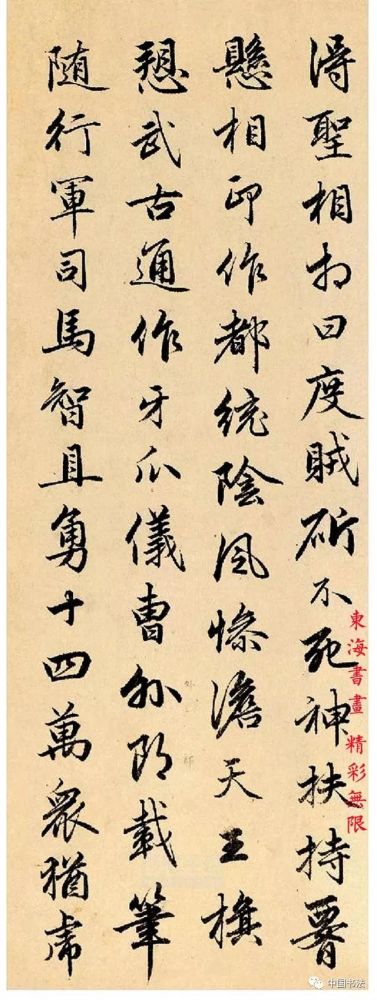 得聖相相曰度賊斫不死神扶持腰
懸相印作都統陰風慘澹天王旗
愬武古通作牙爪儀曹外郎載筆
随行軍司馬智且勇十四萬衆猶虎
東海書畫 精彩無限
中国书法